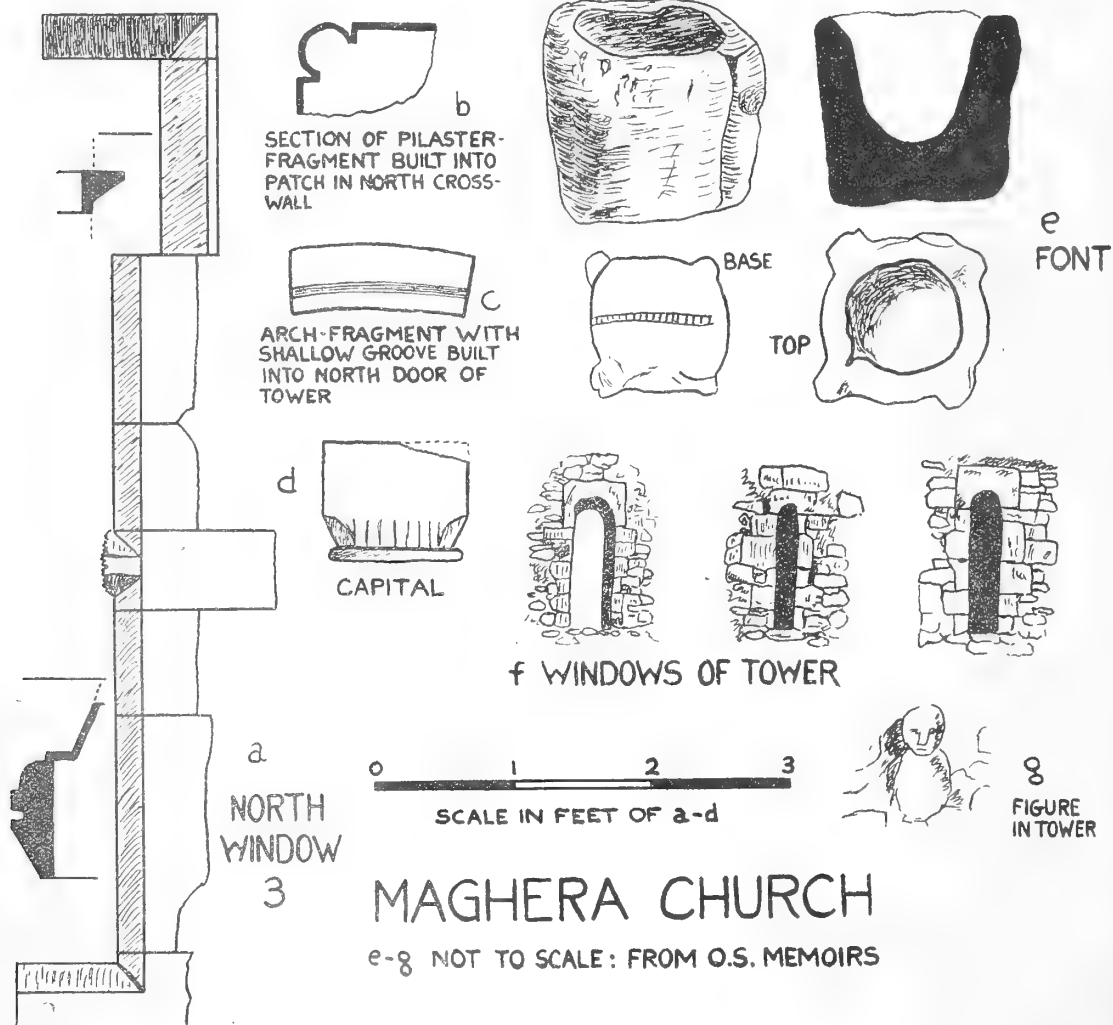 b
SECTION OF PILASTER-
FRAGMENT BUILT INTO
PATCH IN NORTH CROSS-
WALL
c
ARCH-FRAGMENT WITH
SHALLOW GROOVE BUILT
INTO NORTH DOOR OF
TOWER
BASE
TOP
e
FONT
d
CAPITAL
f WINDOWS OF TOWER
a
NORTH
WINDOW
3
0 1 2 3
SCALE IN FEET OF a-d
g
FIGURE
IN TOWER
MAGHERA CHURCH
e-g NOT TO SCALE: FROM O.S. MEMOIRS